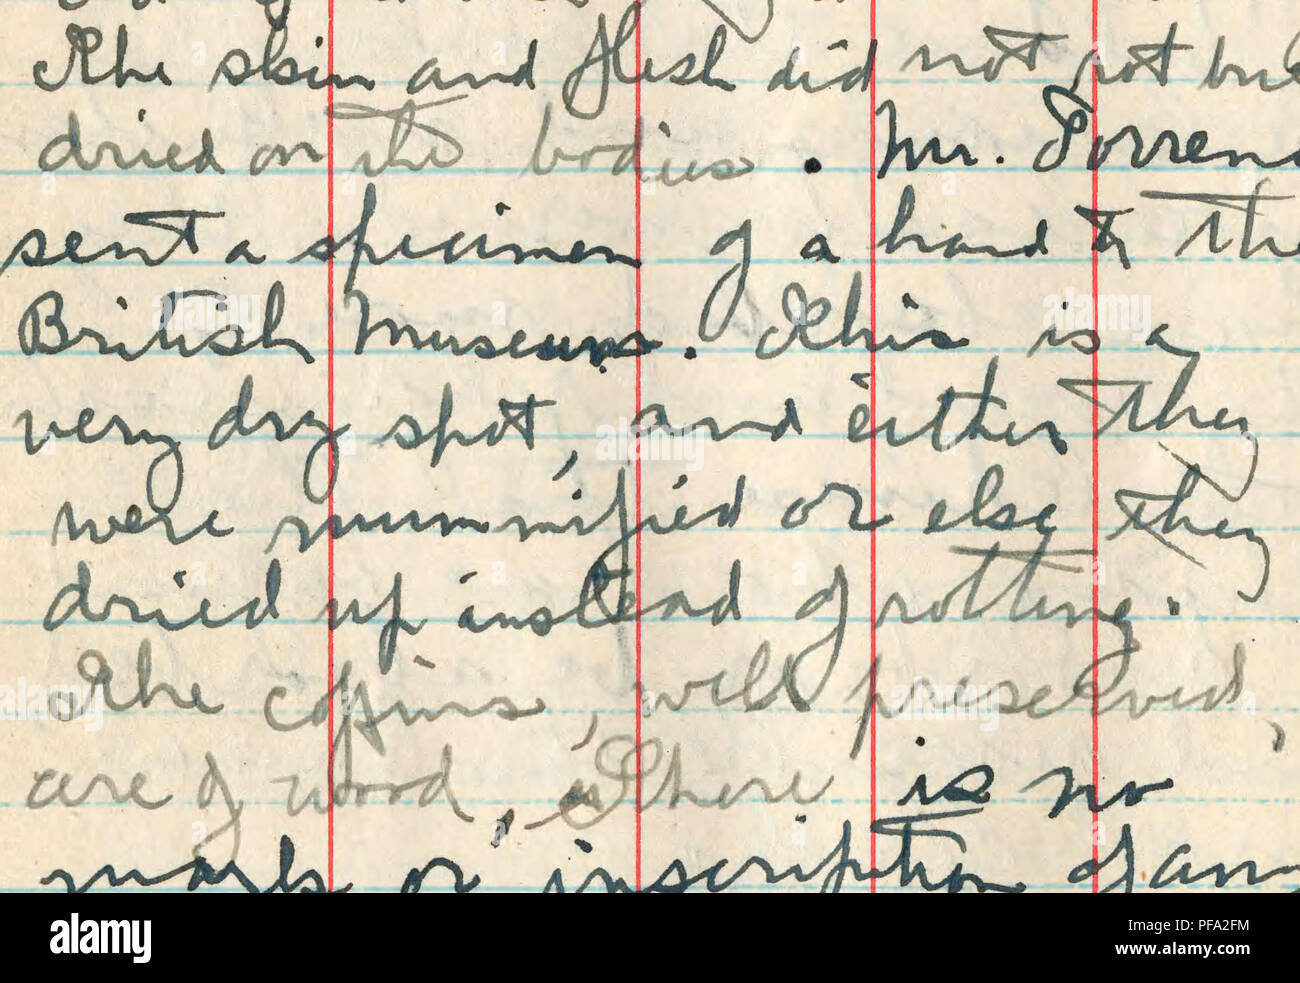 The skin and flesh did not rot but
dried on the bodies. Mr. Torrens
sent a specimen of a hand to the
British Museum. This is a
very dry spot, and either they
were mummified or else they
dried up instead of rotting.
The coffins, well preserved,
are of wood, There is no
mark or inscription of any
alamy
Image ID: PFA2FM
www.alamy.com